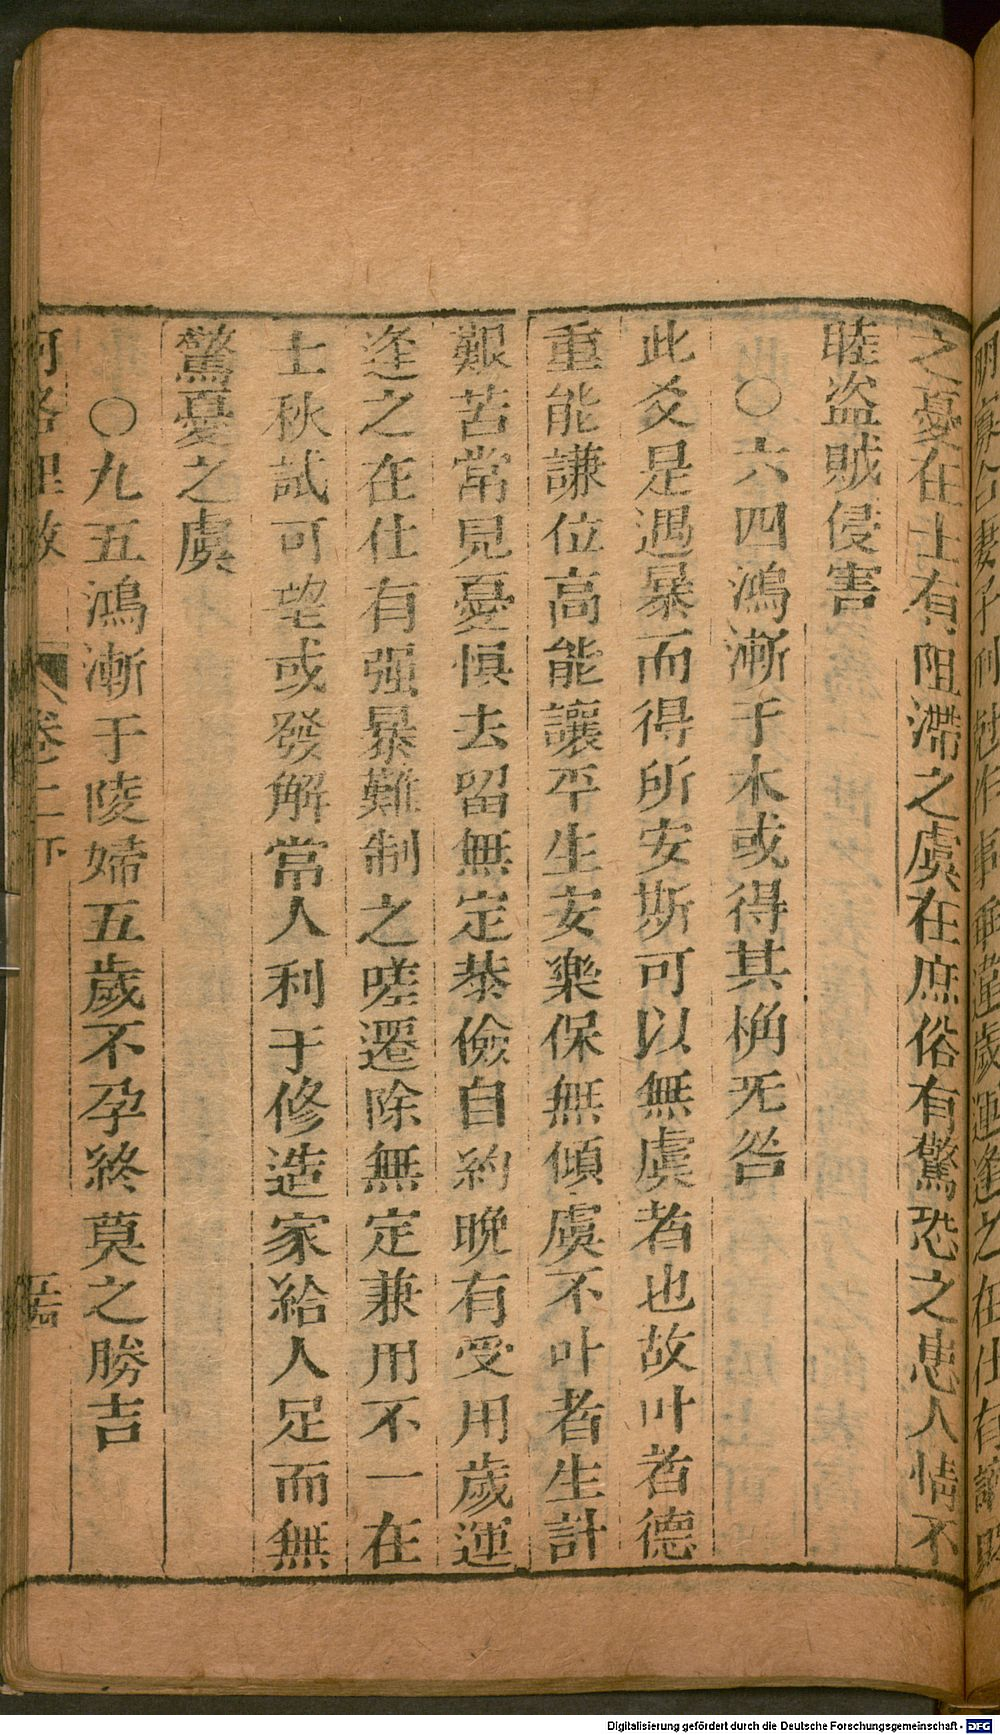 之憂在士有阻滯之虞在庶俗有驚恐之患人情不
睦盗賊侵害
○六四鴻漸于木或得其桷无咎
此爻是遇暴而得所安斯可以無虞者也故叶者德
重能謙位高能讓平生安樂保無傾虞不叶者生計
艱苦常見憂惧去留無定恭儉自約晚有受用歲運
逢之在仕有强暴難制之嗟遷除無定兼用不一在
士秋試可望或發解常人利于修造家給人足而無
驚憂之虞
○九五鴻漸于陵婦五歲不孕終莫之勝吉
河洛理數 卷二下
Digitalisierung gefördert durch die Deutsche Forschungsgemeinschaft - DFG